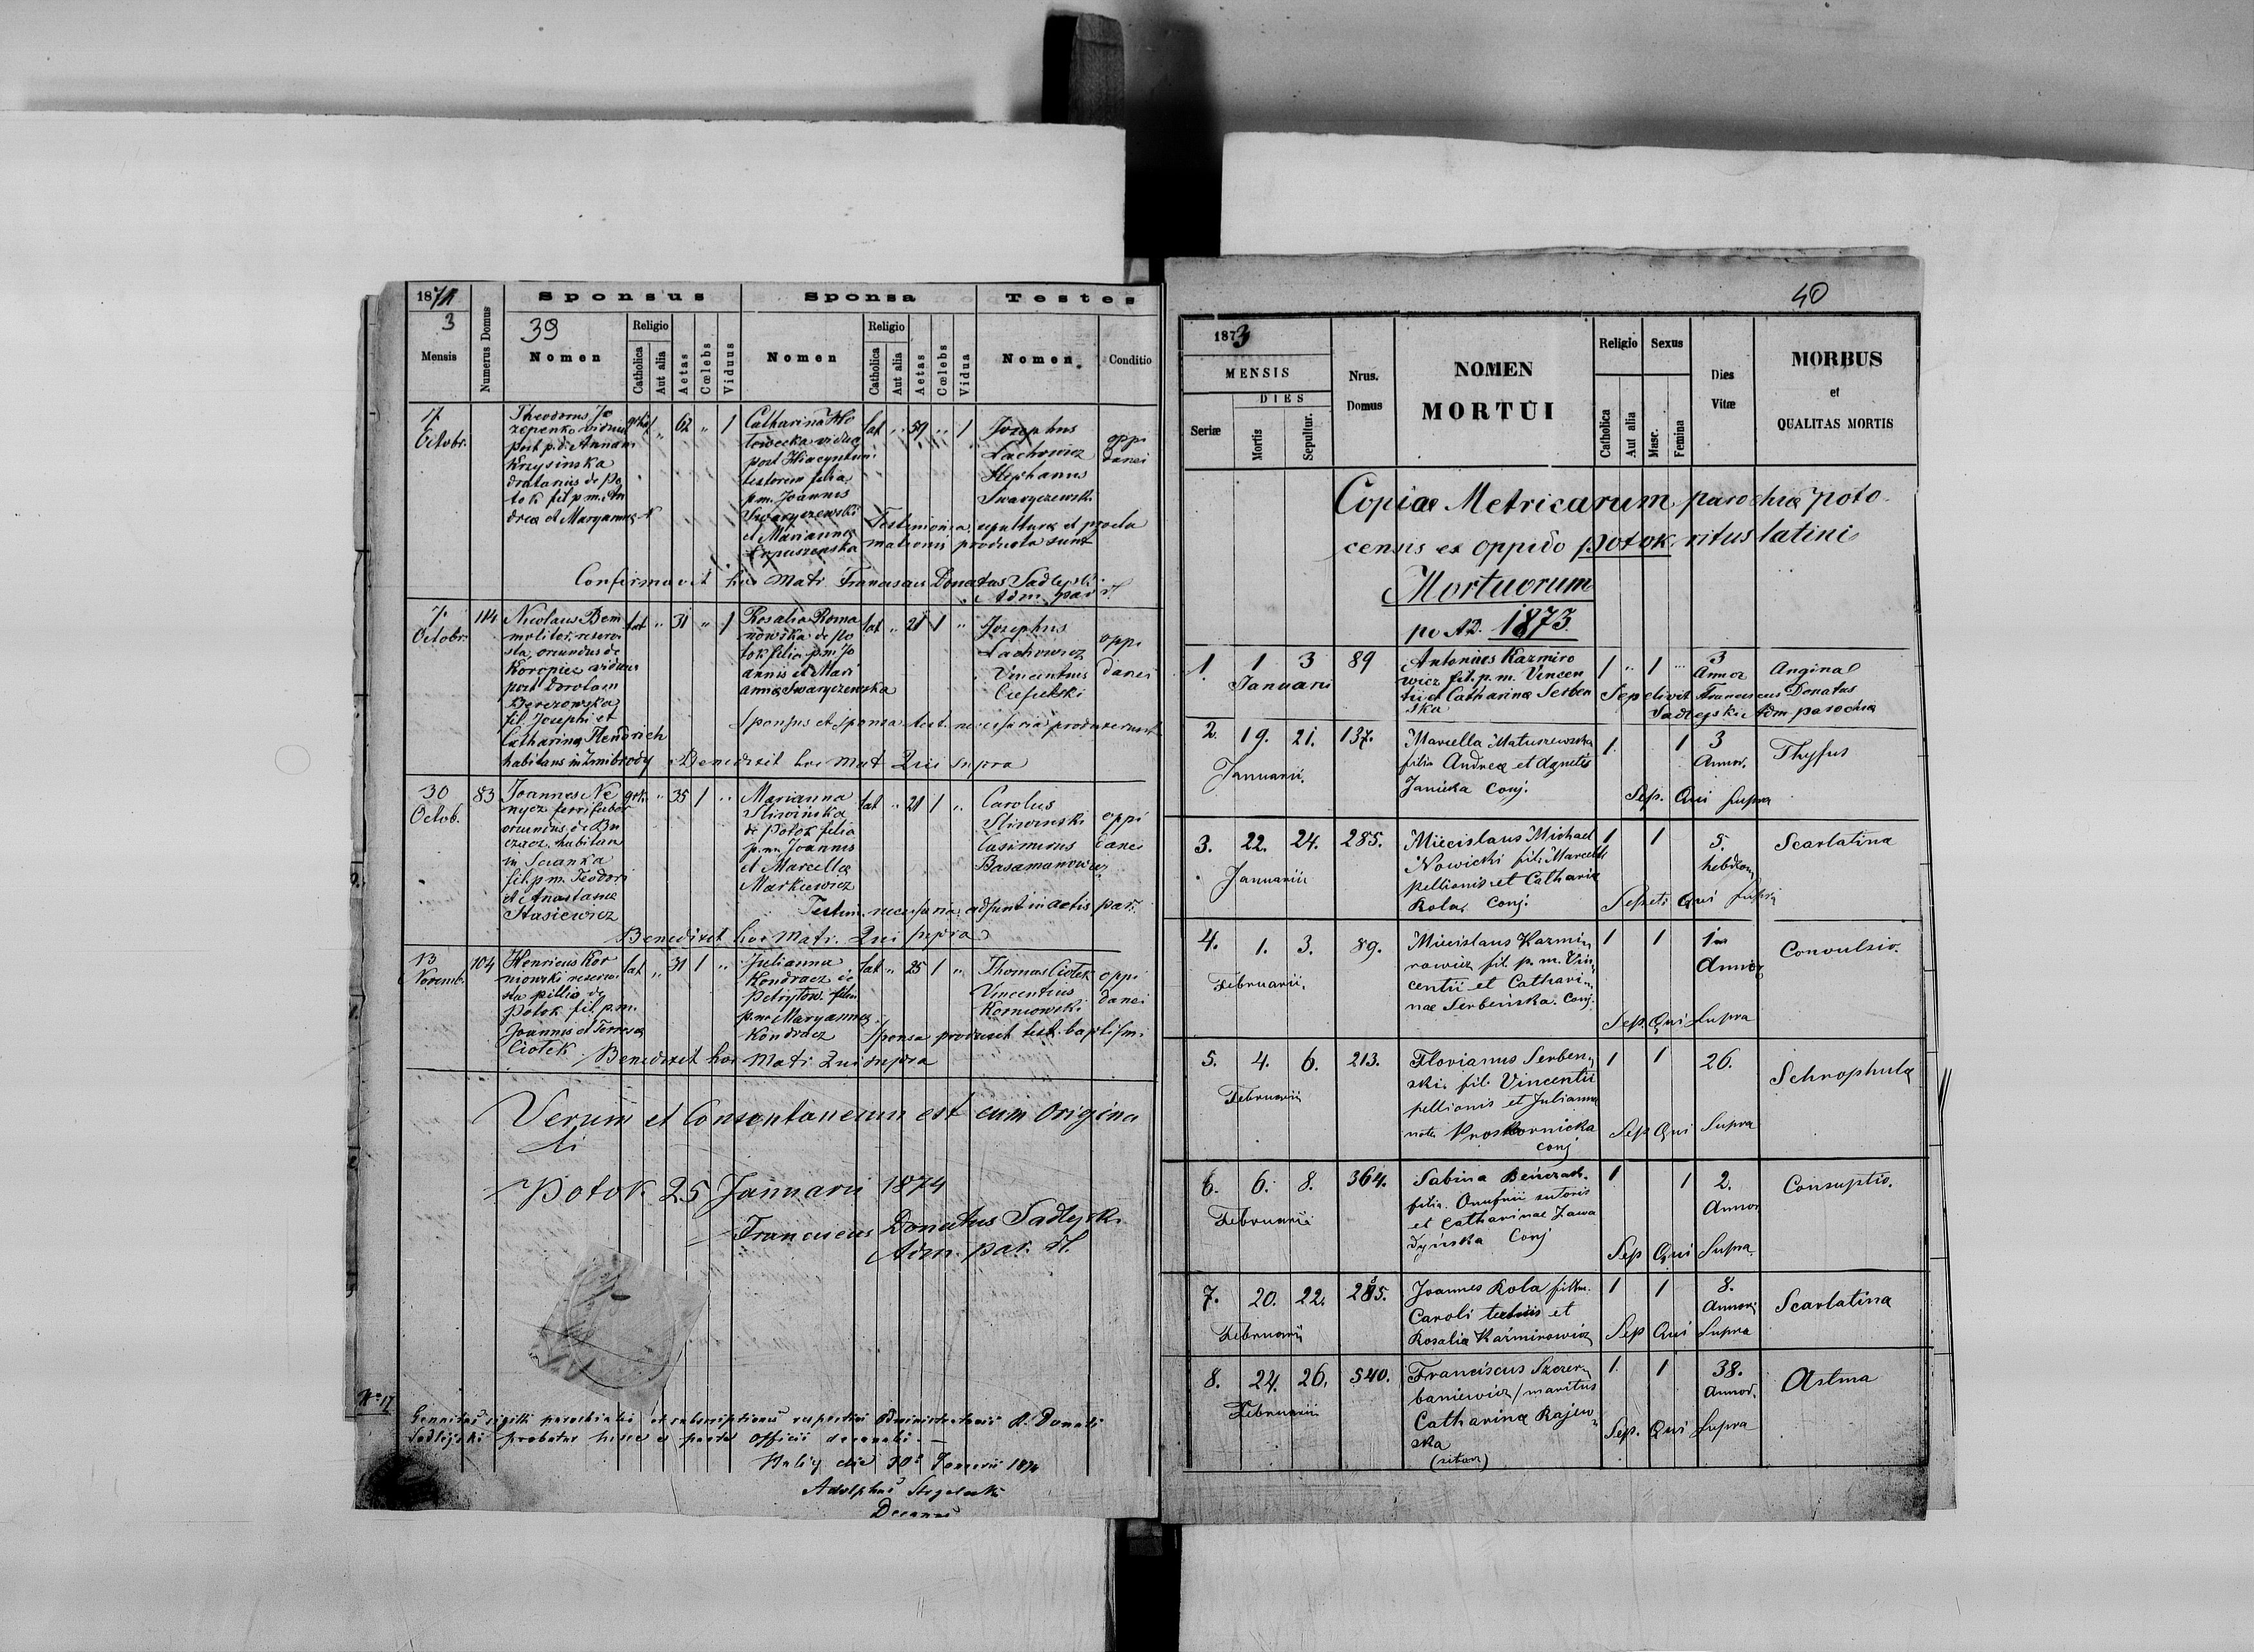 1873
Numerus Domus
Sponsus
Sponsa
Testes
39
Mensis
Nomen
Religio
Catholica
Aut alia
Aetas
Cœlebs
Viduus
Nomen
Religio
Catholica
Aut alia
Aetas
Cœlebs
Vidua
Nomen
Conditio
17
Octobr.
Theodorus
viduus
post p.d. Annam
Krzysinska
de Po
tok fil p.m. An
dreæ et Maryannæ
62 " 1
Catharina
vidua
post Hiacyntum
filia
p.m. Joannis
Swaryczewski
et Marianna
lat " 57 " 1
Josephus
Lachowicz
Stephanus
Swaryczewski
oppi
danei
Testimonia sepulturæ et procla
mationis producta sunt
Confirmavit hoc Matr. Franciscus Donatus Sadlejski
Adm. par.
7
Octobr.
114
Nicolaus Bem
molitor, reservi
sta, oriundus de
Koropiec viduus
post Dorotam
Berezowska
fil. Josephi et
Catharina Hendrich
habitans in
lat " 31 " 1
Rosalia Roma
nowska de Po
tok filia p.m. Jo
annis et Mari
anna Swaryczewska
lat " 21 1 "
Josephus
Lachowicz
Vincentius
oppi
danei
Sponsus et sponsa test. necessaria produxerunt
Benedixit hoc Mat Qui supra
30
Octob.
83
Joannes Ne
nycz ferrifaber
oriundus de Bu
czacz habitan
in Scianka
fil. p.m. Teodori
et Anastasiæ
Stasiewicz
grk. " 35 1 "
Marianna
Sliwinska
de Potok filia
p.m. Joannis
et Marcellæ
Markiewicz
lat " 21 1 "
Carolus
Sliwinski
Casimirus
Basamanowicz
oppi
danei
Testim. necessaria adsunt in actis par.
Benedixit hoc Matr. Qui supra
13
Novemb.
104
Henricus Kor
niowski reservi
sta pellio de
Potok fil. p.m.
Joannis et Teresæ
Ciołek
lat " 31 1 "
Julianna
Kondracz de
Petryłow filia
p.m. Maryannæ
Kondracz
lat " 25 1 "
Thomas Ciołek
Vincentius
Korniowski
oppi
danei
Sponsa produxit test. baptismi
Benedixit hoc Matr. Qui supra
Verum et Consentaneum est cum Origina
li
Potok 25 Januarii 1874
Franciscus Donatus Sadlejski
Adm. par.
No 17
Genuitas sigilli parochialis et subscriptionis respectivi Administratoris D. Donati
Sadlejski probatur hisce ex parte Officii decanalis.
die 30 Januarii 1874
Adolphus
Decanus
40
1873
MENSIS
DIES
Seriæ
Mortis
Sepultur.
Nrus.
Domus
NOMEN
MORTUI
Religio
Catholica
Aut alia
Sexus
Masc.
Femina
Dies
Vitæ
MORBUS
et
QUALITAS MORTIS
Copiæ Metricarum parochiæ poto
censis ex oppido Potok ritus latini
Mortuorum
pro AD. 1873.
1 1 3 89
Januarii
Antonius Kazmiro
wicz fil. p.m. Vincen
tii et Catharina Serben
ska
1 " 1 " 3
Annor
Angina
Sepelivit Franciscus Donatus
Sadlejski Adm parochiæ
2. 19. 21. 137.
Januarii.
Marcella Matuszewska
filia Andreæ et Agnetis
Janicka Conj.
1. 1 3
Annor.
Thyfus
Sep. Qui Supra
3. 22. 24. 285.
Januarii
Miecislaus Michael
Nowicki fil. Marcelli
pellionis et Catharinæ
Rola. Conj.
1 1 5.
hebdom
Scarlatina
Sepeli Qui Supra
4. 1. 3. 89.
Februarii.
Miecislaus Kazmi
rowicz fil. p.m. Vin
centii et Cathari
nae Serbeńska. Conj.
1 1 1
Anni
Convulsio.
Sep. Qui Supra
5. 4. 6. 213.
Februarii
Florianus Serben
ski fil. Vincentii
pellionis et Julianna
nata Proskornicka
Conj
1 1 26.
Schrophulæ
Sep Qui Supra
6. 6. 8. 364.
Februarii
Sabina
filia Onufrii sutoris
et Catharinae Zawa
dyńska Conj
1 1 2.
Annor
Consuptio.
Sep Qui Supra.
7. 20. 22. 285.
Februarii
Joannes Rola filius
Caroli et
Rosalia Kaźmirowicz
1 1 8.
Annor.
Scarlatina
Sep Qui Supra
8. 24. 26. 540.
Februarii
Franciscus Szczer
baniewicz / maritus
Catharina Rajew
ska
1. 1 38.
Annor.
Astma
Sep. Qui Supra